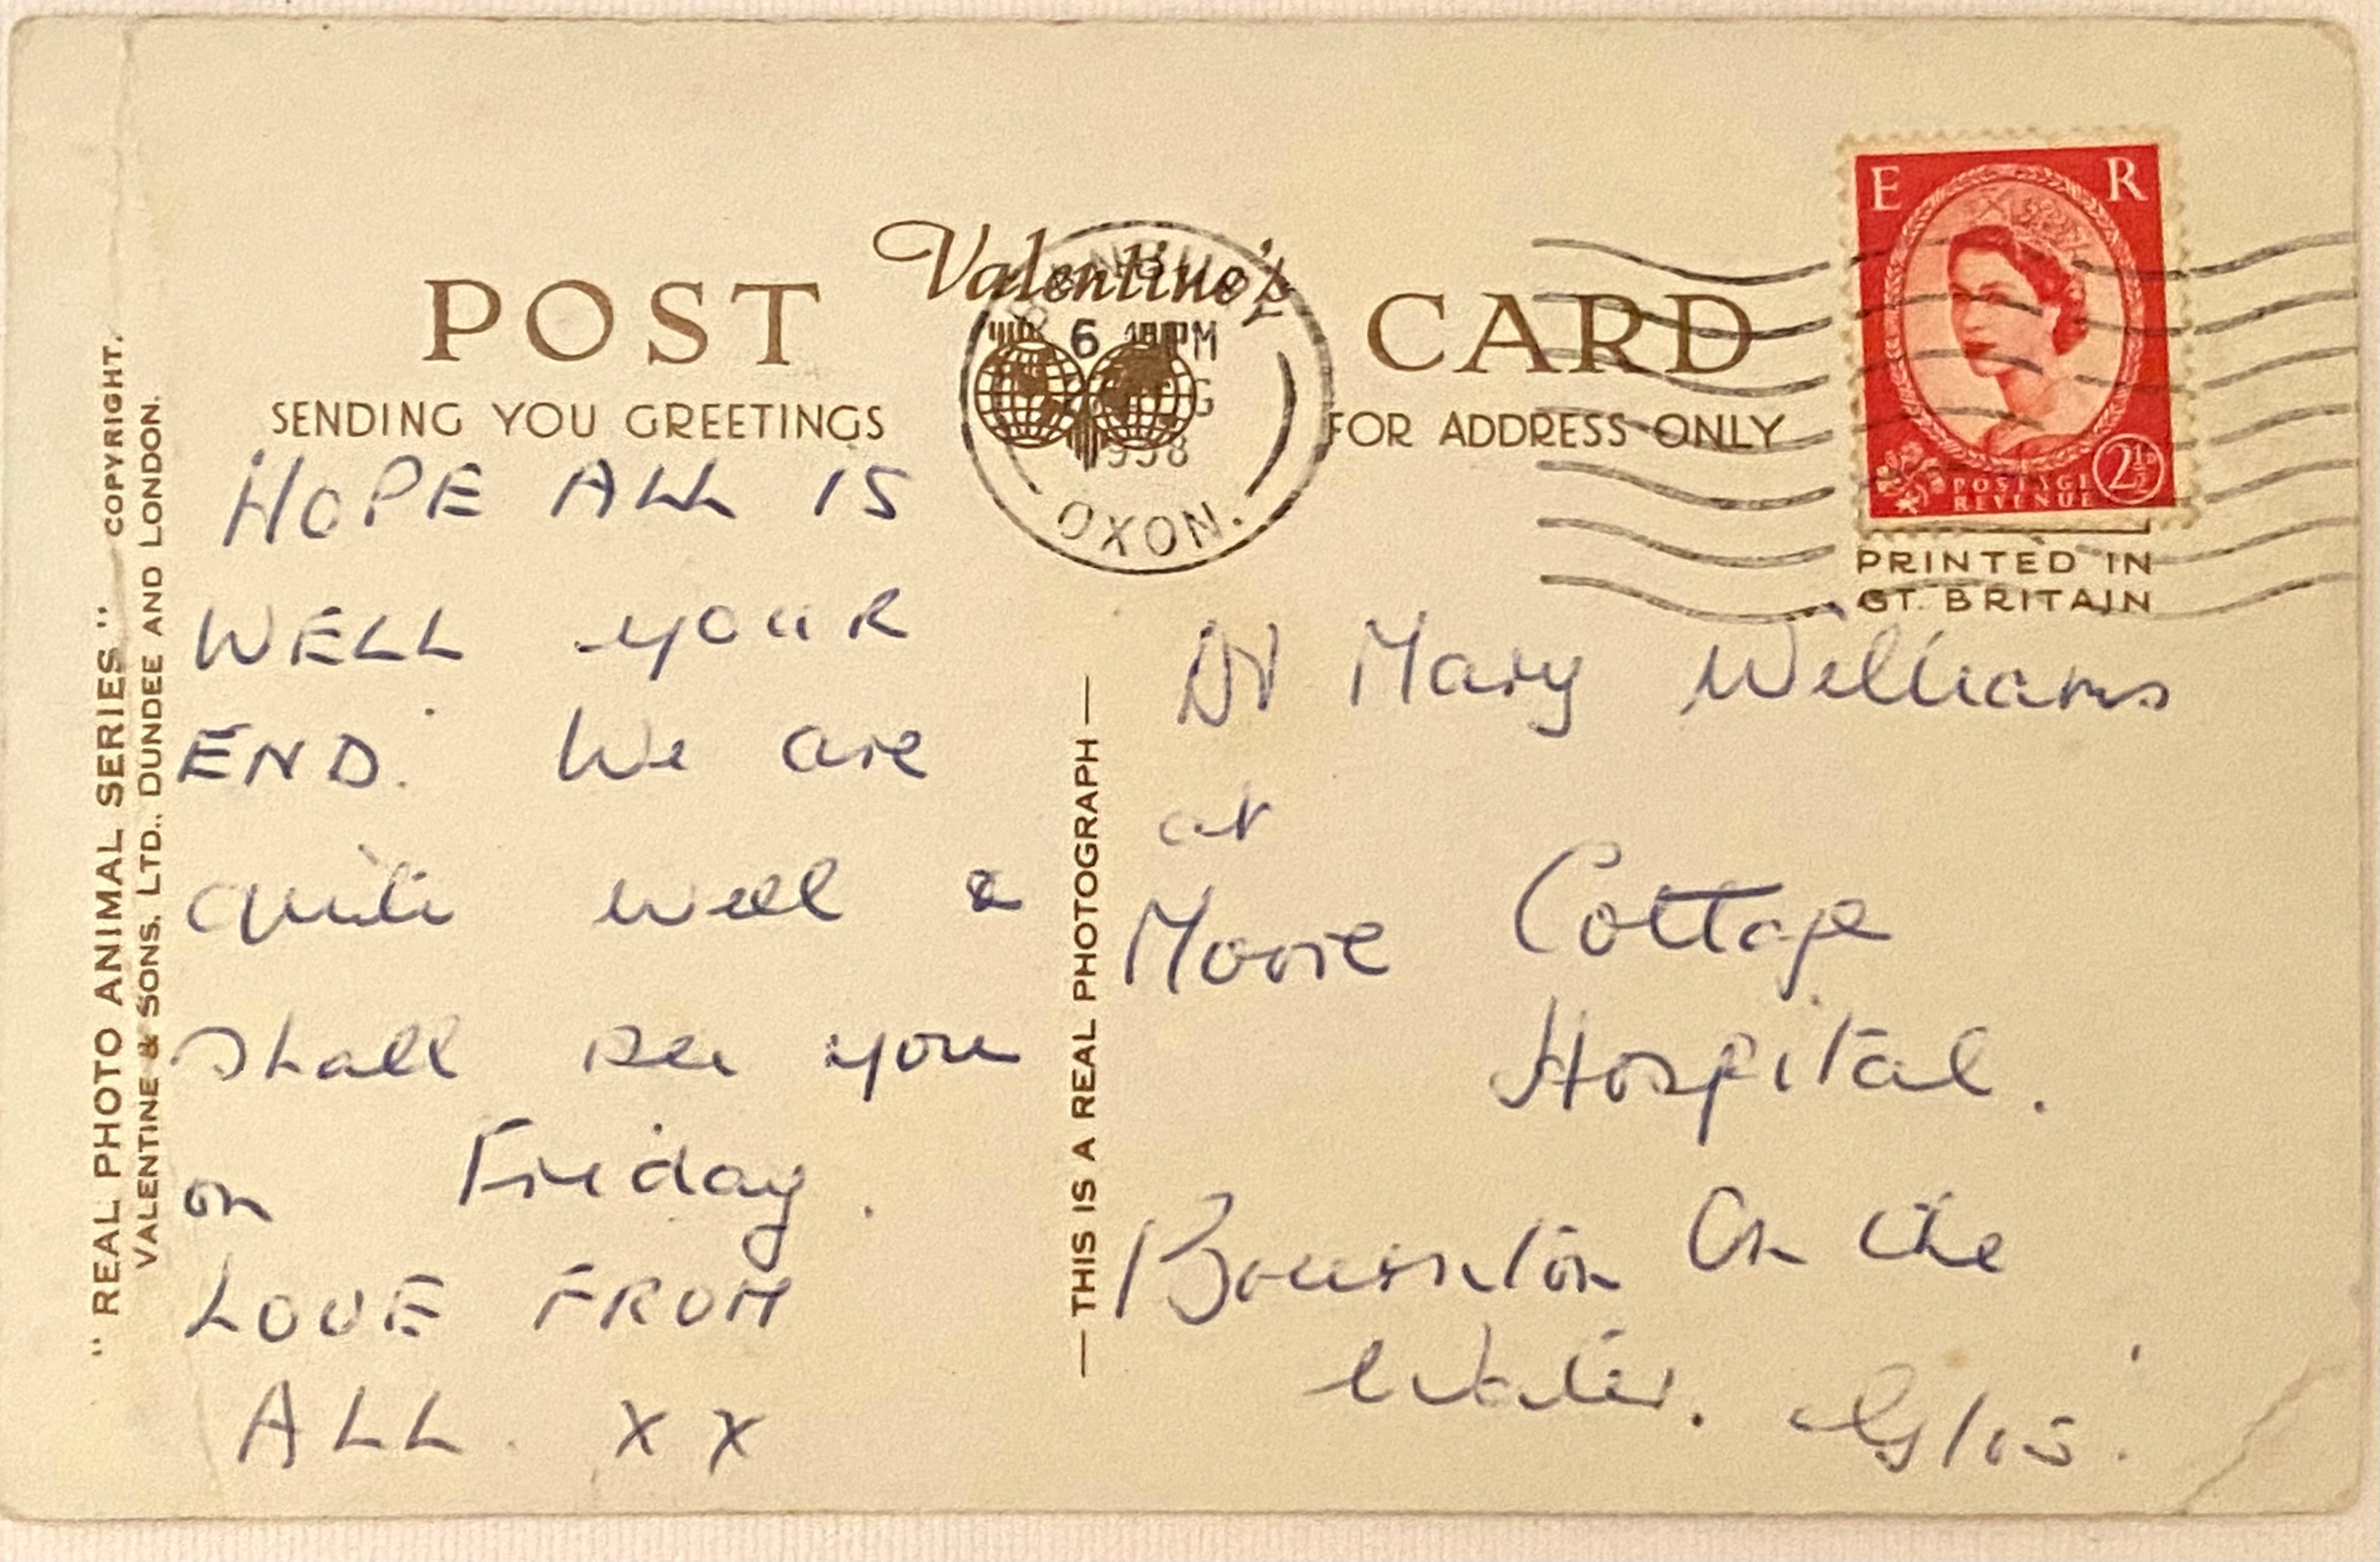 Valentine's
POST CARD
SENDING YOU GREETINGS
FOR ADDRESS ONLY
HOPE ALL IS
WELL YOUR
END. We are
quite well &
shall see you
on Friday.
LOVE FROM
ALL. x x
"REAL PHOTO ANIMAL SERIES" COPYRIGHT.
VALENTINE & SONS. LTD., DUNDEE AND LONDON.
— THIS IS A REAL PHOTOGRAPH —
6 PM
1958
OXON.
E R
POSTAGE
REVENUE
2½
PRINTED IN
GT. BRITAIN
Mary Williams
at
Moore Cottage
Hospital.
Bourton On the
Water. Glos.